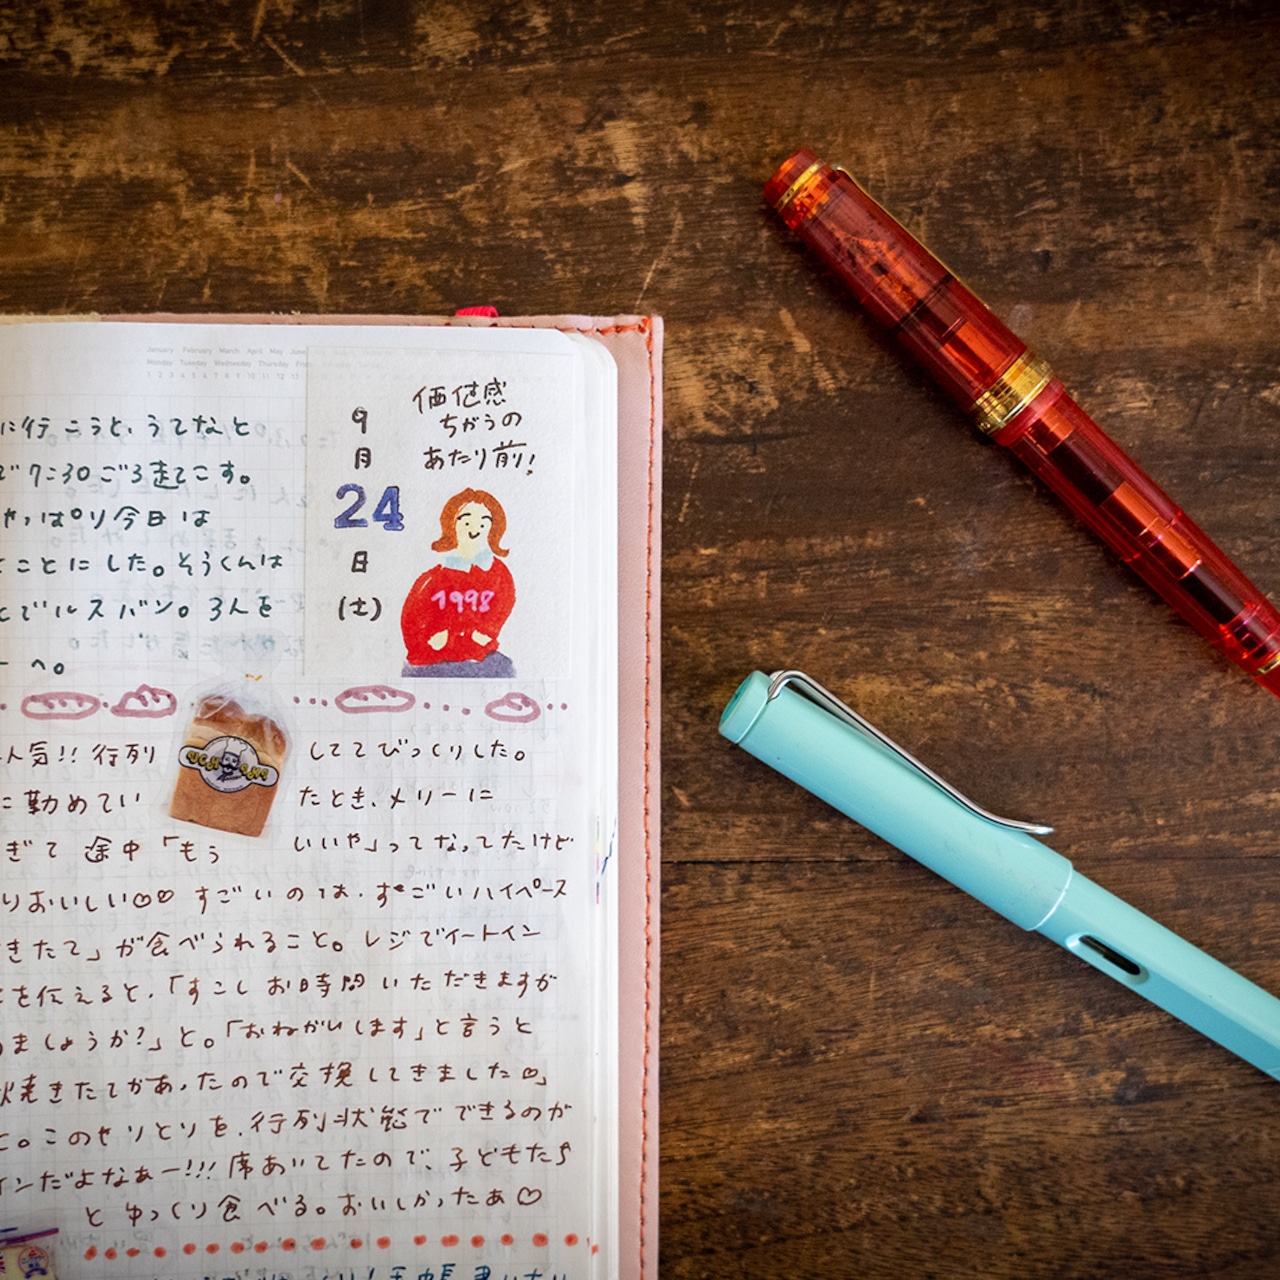 January February March April May June
Monday Tuesday Wednesday Thursday
1 2 3 4 5 6 7 8 9 10 11 12 13
9
月
24
日
(土)
価値感
ちがうの
あたり前!
1998
に行こうと、うてなと
で7:30ごろ起てこす。
やっぱり今日は
ことにした。そうくんは
とでルスバン。3人を
ーへ。
人気!! 行列 しててびっくりした。
に勤めてい たとき、メリーに
ぎて 途中「もう いいや」ってなってたけど
りおいしい♡♡ すごいのでは、すごいハイペース
きたて」が食べられること。レジでイートイン
を伝えると、「すこしお時間いただきますが
ましょうか?」と。「おねがいします」と言うと
焼きたてがあったので交換してきました♡」
と。このやりとりを、行列状態でできるのが
インだよなぁー!!! 席あいてたので、子どもたち
と ゆっくり食べる。おいしかったぁ♡